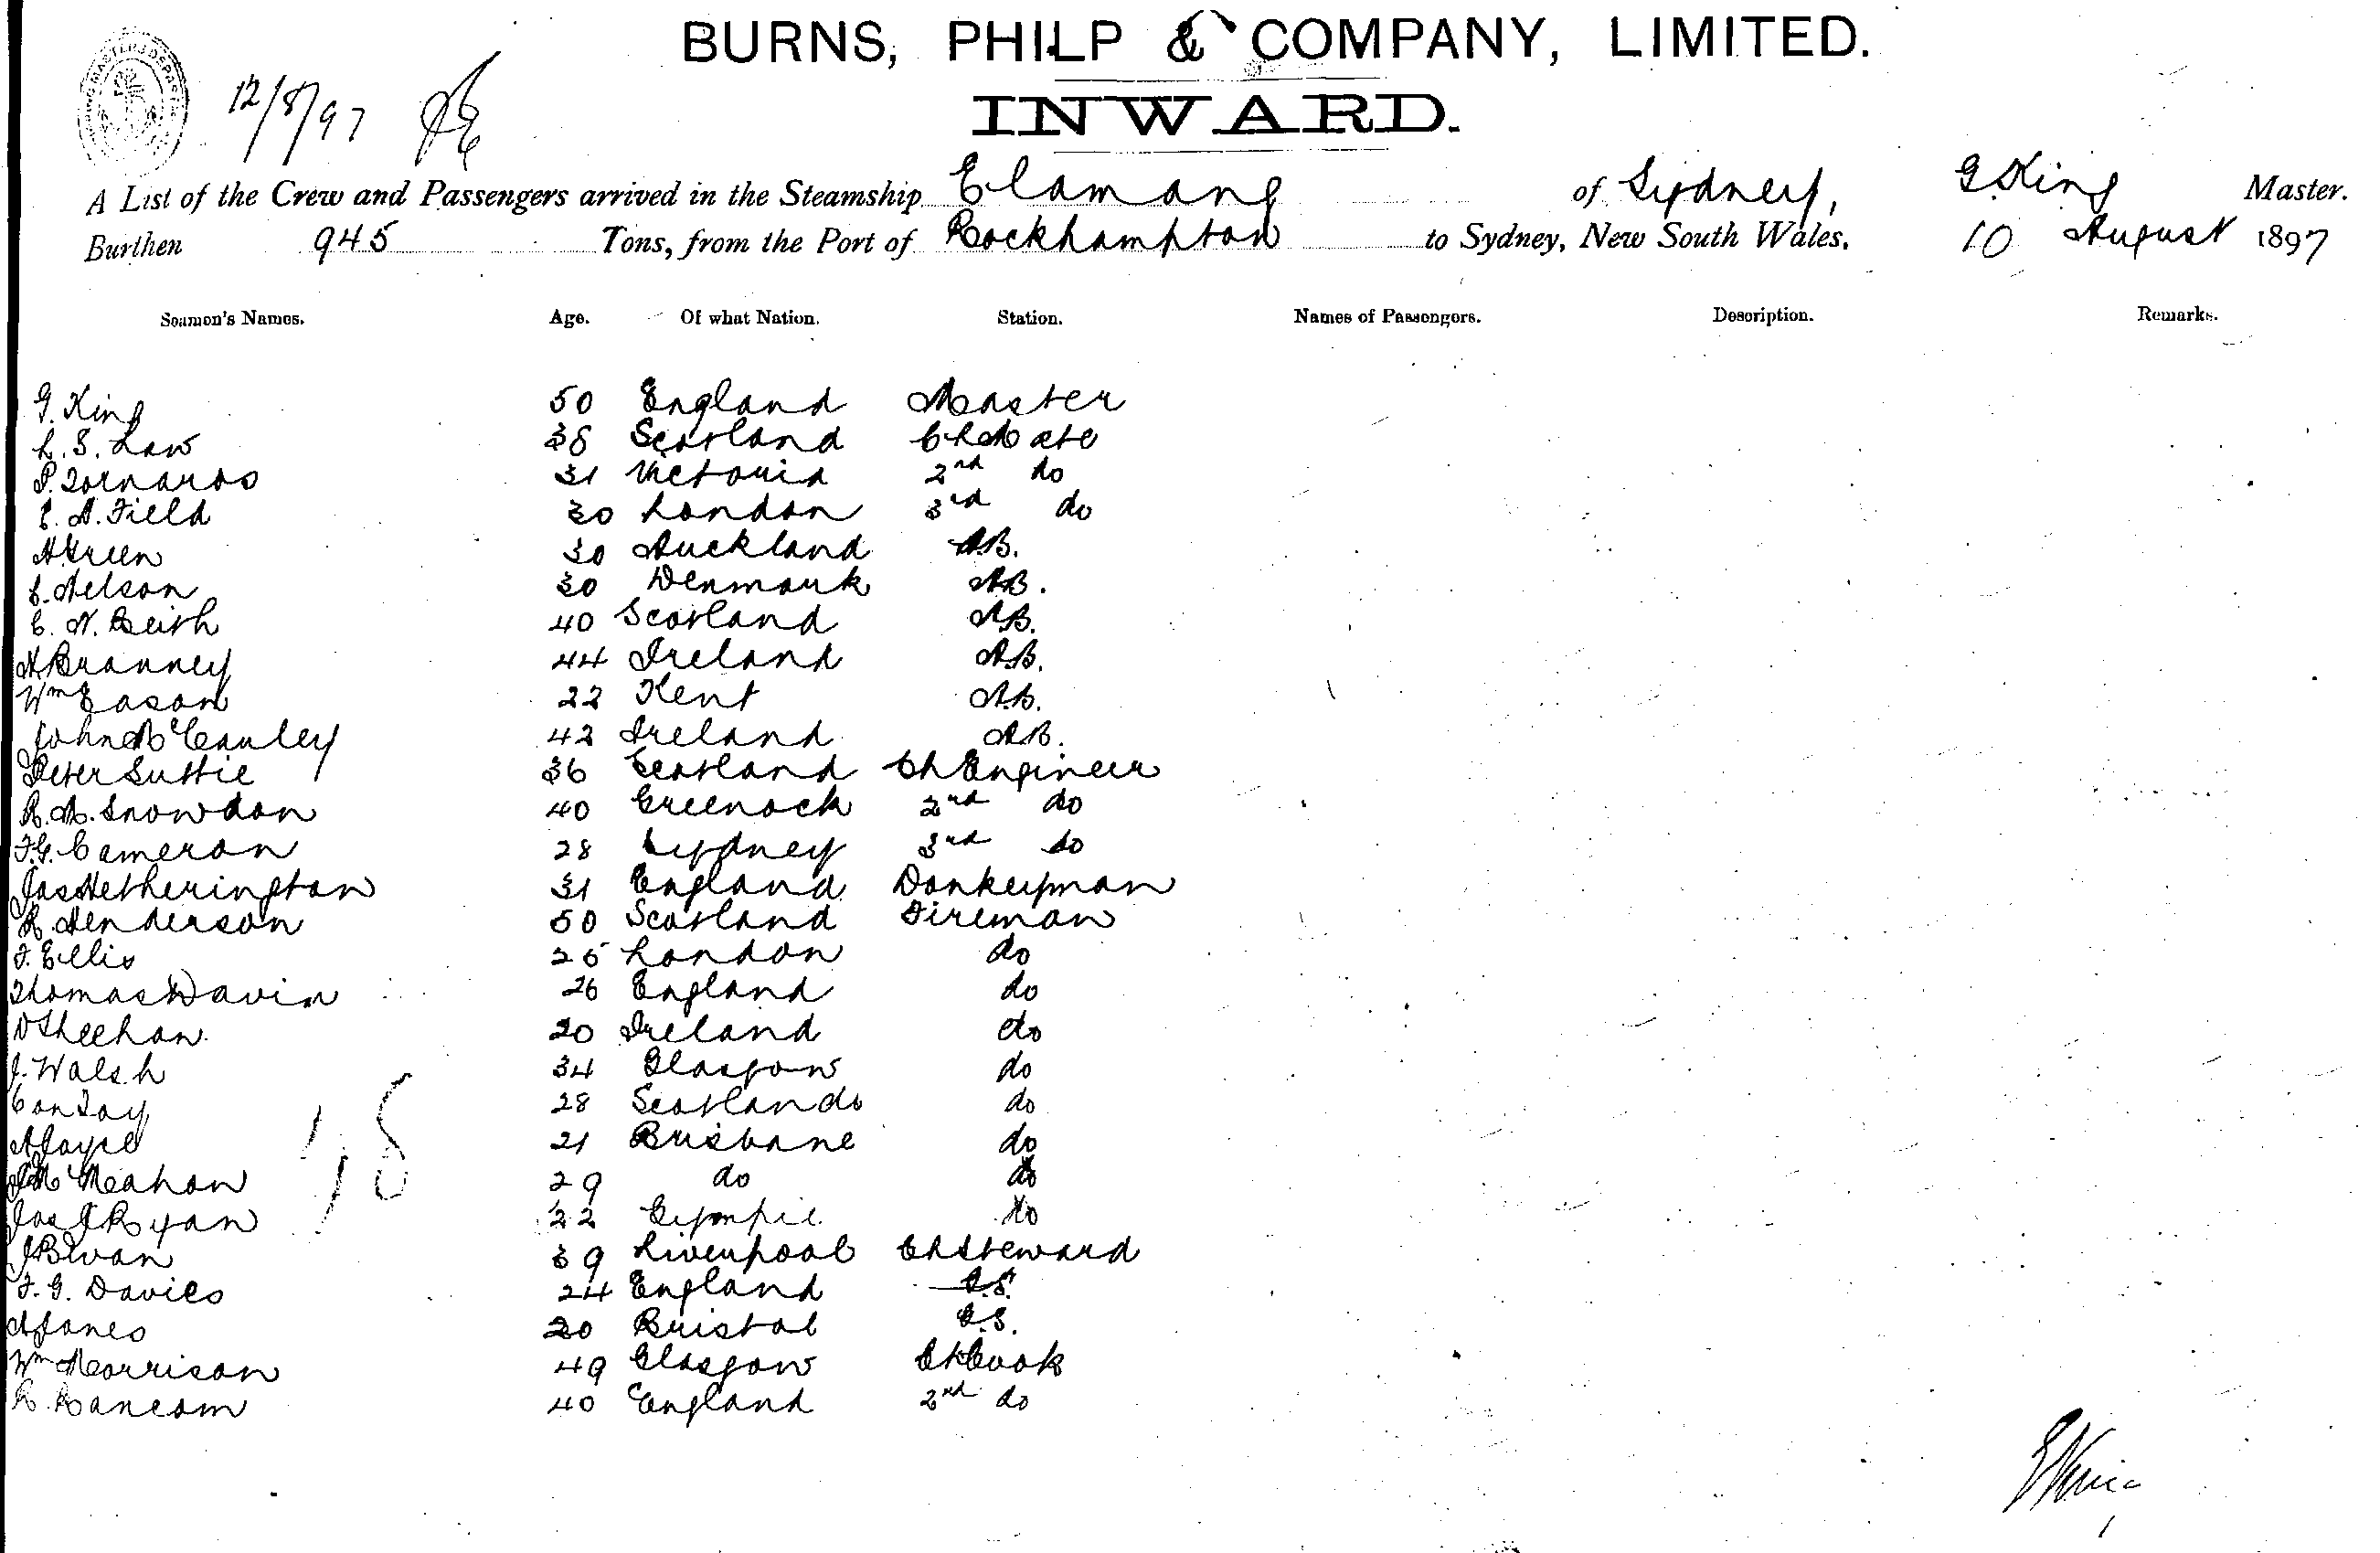 BURNS, PHILP & COMPANY, LIMITED.
INWARD.
12/8/97
A List of the Crew and Passengers arrived in the Steamship Elamang of Sydney, G. King Master.
Burthen 945 Tons, from the Port of Rockhampton to Sydney, New South Wales. 10 August 1897
Seamen's Names. Age. Of what Nation. Station. Names of Passengers. Description. Remarks.
G. King 50 England Master
L. S. Law 38 Scotland Ch Mate
P. 31 Victoria 2nd do
C. A. Field 30 London 3rd do
A Green 30 Auckland AB.
C. Nelson 30 Denmark AB.
C. N. Beith 40 Scotland AB.
H Branney 44 Ireland AB.
Wm Eason 22 Kent AB.
John McCauley 42 Ireland AB.
Peter Suttie 36 Scotland Ch Engineer
R. M. Snowdon 40 Greenock 2nd do
F.G. Cameron 28 Sydney 3rd do
Jas Hetherington 31 England Donkeyman
R. Henderson 50 Scotland Fireman
F. Ellis 25 London do
Thomas Davin 26 England do
D Sheehan 20 Ireland do
J. Walsh 34 Glasgow do
Con 28 Scotland do do
A Joyce 21 Brisbane do
McMeahon 29 do do
Jas J Ryan 22 Gympie do
J Bevan 39 Liverpool Ch Steward
F. G. Davies 24 England
A Jones 20 Bristol
Wm Morrison 49 Glasgow Ch Cook
R. Ransom 40 England 2nd do
18
G King